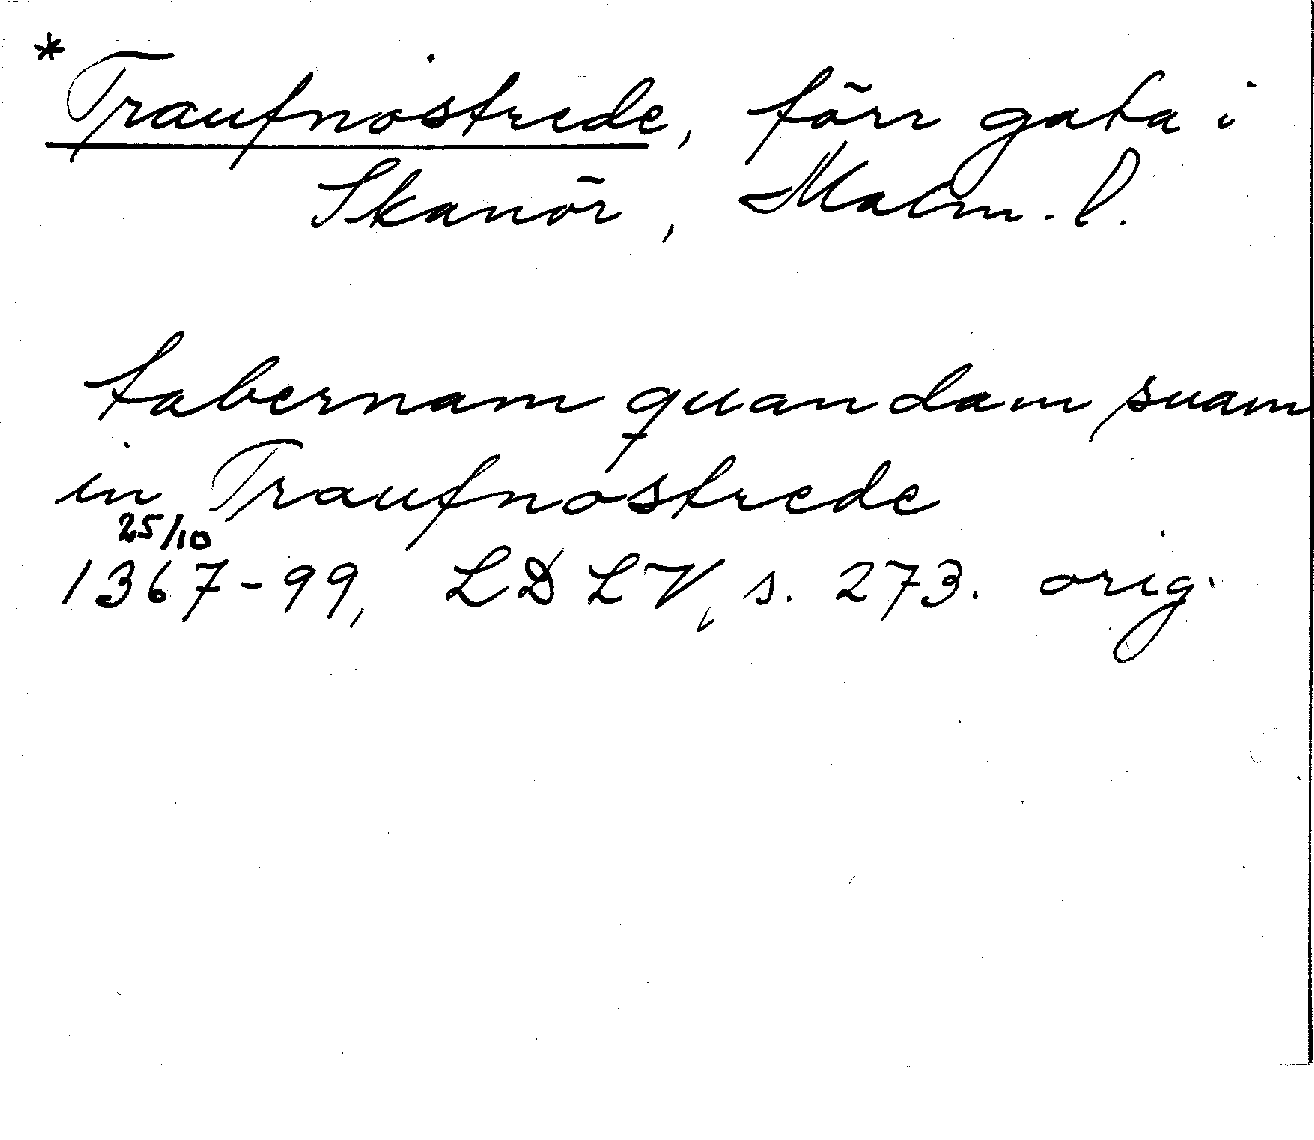 *Traufnostrede, förr gata i
Skanör, Malm. l.
tabernam quandam suam
in Traufnostrede
25/10
1367-99, LDLV, s. 273. orig.